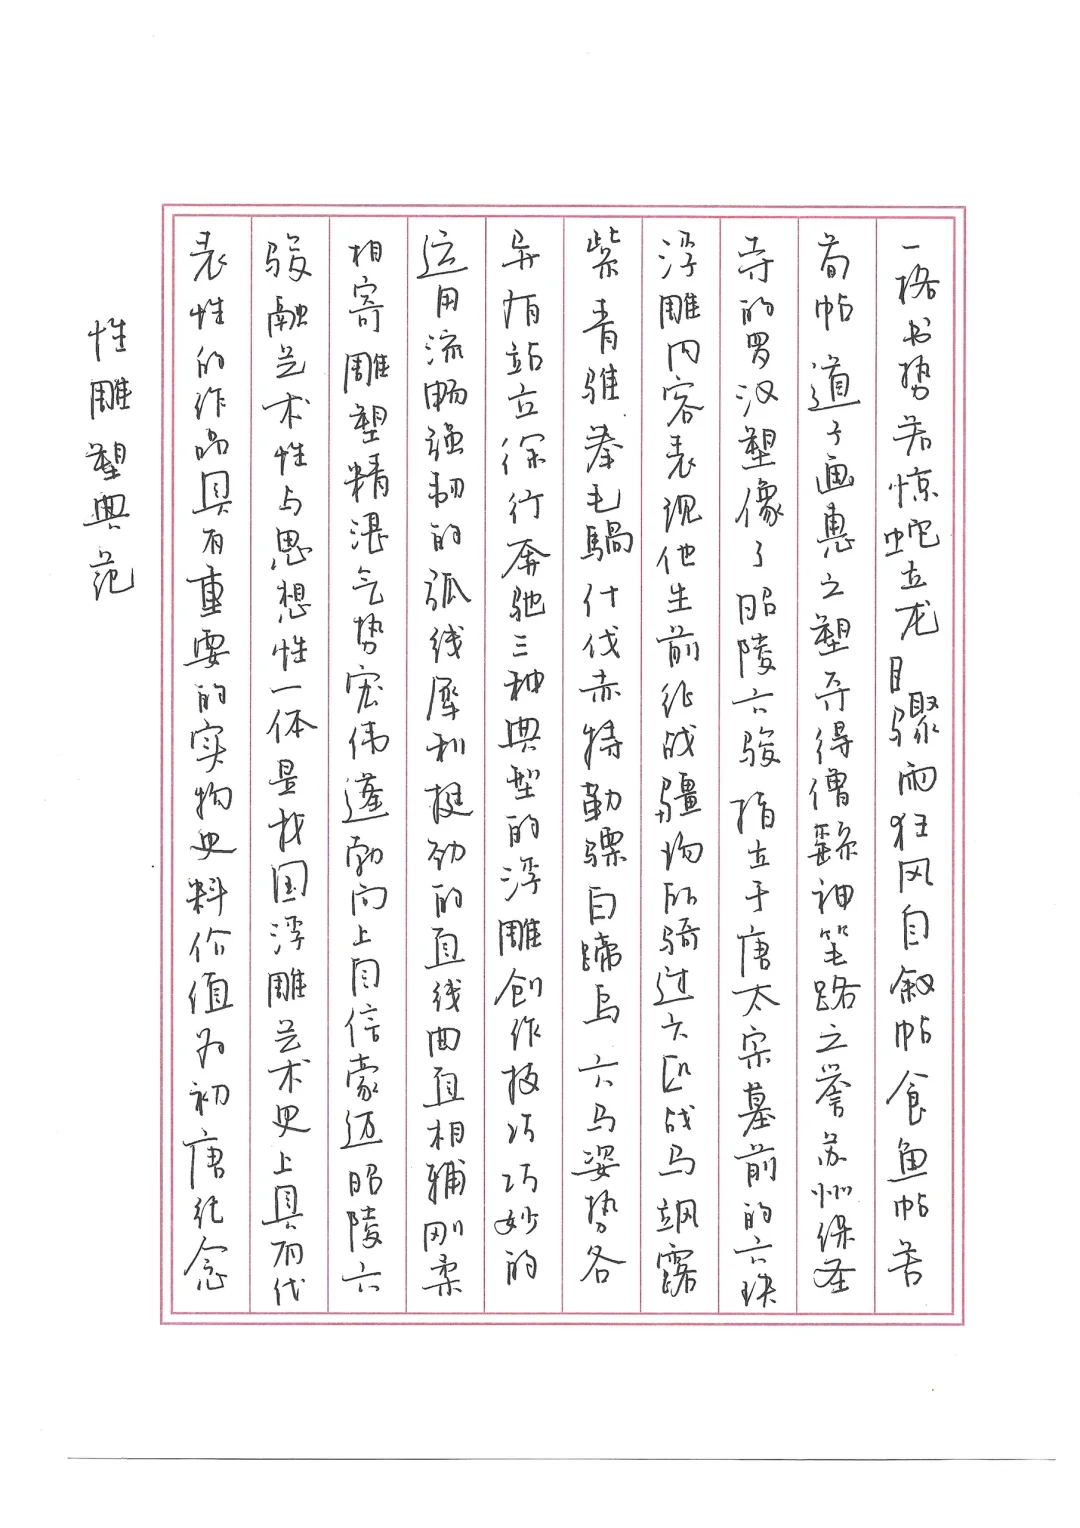 一格书势若惊蛇立龙目骤雨狂风自叙帖食鱼帖苦
荀帖道子画惠之塑夺得僧繇神笔路之誉苏州保圣
寺的罗汉塑像了昭陵六骏指立于唐太宗墓前的六块
浮雕内容表现他生前征战疆场所骑过六匹战马飒露
紫青骓拳毛騧什伐赤特勤骠白蹄乌六马姿势各
异有站立徐行奔驰三种典型的浮雕创作技巧巧妙的
运用流畅强韧的弧线犀利挺劲的直线曲直相辅刚柔
相寄雕塑精湛气势宏伟蓬勃向上自信豪迈昭陵六
骏融艺术性与思想性一体是我国浮雕艺术史上具有代
表性的作品具有重要的实物史料价值为初唐纪念
性雕塑典范